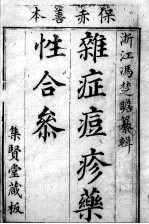 保赤善本
浙江馮楚瞻纂輯
雜症痘疹藥
性合參
集賢堂蔵板